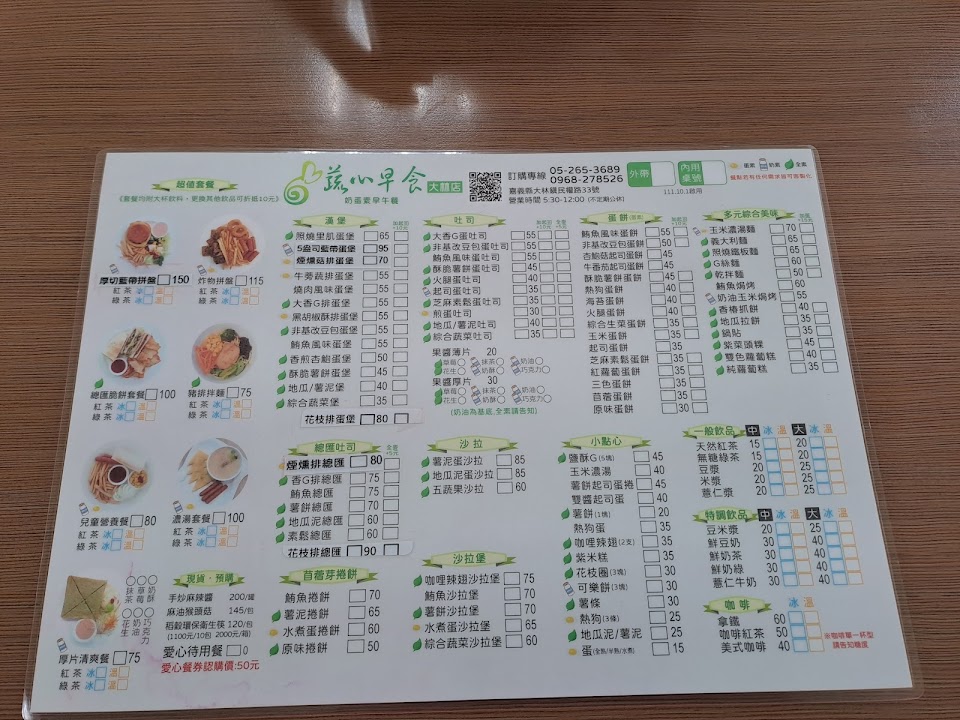 超值套餐
《套餐均附大杯飲料,更換其他飲品可折抵10元》
蔬心早食 大林店
奶蛋素早午餐
訂購專線 05-265-3689
0968-278526
嘉義縣大林鎮民權路33號
營業時間 5:30-12:00 (不定期公休)
外帶
內用桌號
111.10.1啟用
蛋素 奶素 全素
餐點若有任何需求皆可客製化
厚切藍帶拼盤 150
紅茶 冰 溫
綠茶 冰 溫
炸物拼盤 115
紅茶 冰 溫
綠茶 冰 溫
總匯脆餅套餐 100
紅茶 冰 溫
綠茶 冰 溫
豬排拌麵 75
紅茶 冰 溫
綠茶 冰 溫
兒童營養餐 80
紅茶 冰 溫
綠茶 冰 溫
濃湯套餐 100
紅茶 冰 溫
綠茶 冰 溫
抹茶 草莓 奶酥
花生 奶油 巧克力
厚片清爽餐 75
紅茶 冰 溫
綠茶 冰 溫
現貨·預購
手炒麻辣醬 200/罐
麻油猴頭菇 145/包
稻穀環保衛生筷 120/包
(1100元/10包 2000元/箱)
愛心待用餐 0
愛心餐券認購價:50元
漢堡
照燒里肌蛋堡 65
5盎司藍帶蛋堡 95
煙燻菇排蛋堡 70
牛蒡蔬排蛋堡 55
燒肉風味蛋堡 55
大香G排蛋堡 55
黑胡椒酥排蛋堡 55
非基改豆包蛋堡 55
鮪魚風味蛋堡 55
香煎杏鮑蛋堡 50
酥脆薯餅蛋堡 45
地瓜/薯泥堡 40
綜合蔬菜堡 35
花枝排蛋堡 80
吐司
大香G蛋吐司 55
非基改豆包蛋吐司 55
鮪魚風味蛋吐司 55
酥脆薯餅蛋吐司 40
火腿蛋吐司 40
起司蛋吐司 35
芝麻素鬆蛋吐司 40
煎蛋吐司 30
地瓜/薯泥吐司 40
綜合蔬菜吐司 30
果醬薄片 20
草莓 抹茶 奶油
花生 奶酥 巧克力
果醬厚片 30
草莓 抹茶 奶油
花生 奶酥 巧克力
(奶油為基底,全素請告知)
蛋餅
鮪魚風味蛋餅 55
非基改豆包蛋餅 50
杏鮑菇起司蛋餅 50
牛番茄起司蛋餅 50
酥脆薯餅蛋餅 45
熱狗蛋餅 40
海苔蛋餅 40
火腿蛋餅 40
綜合生菜蛋餅 40
玉米蛋餅 40
起司蛋餅 35
芝麻素鬆蛋餅 35
紅蘿蔔蛋餅 35
三色蛋餅 35
苜蓿蛋餅 35
原味蛋餅 30
多元綜合美味
玉米濃湯麵 70
義大利麵 65
照燒鐵板麵 65
G絲麵 55
乾拌麵 50
鮪魚焗烤 60
奶油玉米焗烤 55
香椿抓餅 40
地瓜拉餅 35
鍋貼 35
紫菜頭粿 45
雙色蘿蔔糕 40
純蘿蔔糕 35
總匯吐司
煙燻排總匯 80
香G排總匯 75
鮪魚總匯 75
薯餅總匯 70
地瓜泥總匯 60
素鬆總匯 60
花枝排總匯 90
苜蓿芽捲餅
鮪魚捲餅 70
薯泥捲餅 65
水煮蛋捲餅 60
原味捲餅 50
沙拉
薯泥蛋沙拉 85
地瓜泥蛋沙拉 85
五蔬果沙拉 60
沙拉堡
咖哩辣翅沙拉堡 75
鮪魚沙拉堡 70
薯泥沙拉堡 70
水煮蛋沙拉堡 65
綜合蔬菜沙拉堡 60
小點心
鹽酥G(5塊) 45
玉米濃湯 40
薯餅起司蛋捲 45
雙醬起司蛋 40
薯餅(1塊) 20
熱狗蛋 35
咖哩辣翅(2支) 35
紫米糕 35
花枝圈(3塊) 30
可樂餅(3塊) 30
薯條 30
熱狗(3條) 25
地瓜泥/薯泥 25
蛋(全熟/半熟/水煮) 15
一般飲品 中 冰 溫 大 冰 溫
天然紅茶 15 20
無糖綠茶 15 20
豆漿 20 25
米漿 20 25
薏仁漿 20 25
特調飲品 中 冰 溫 大 冰 溫
豆米漿 20 25
鮮豆奶 30 40
鮮奶茶 30 40
鮮奶綠 30 40
薏仁牛奶 30 40
咖啡 冰 溫
拿鐵 60
咖啡紅茶 50
美式咖啡 40
※咖啡單一杯型
請告知糖度